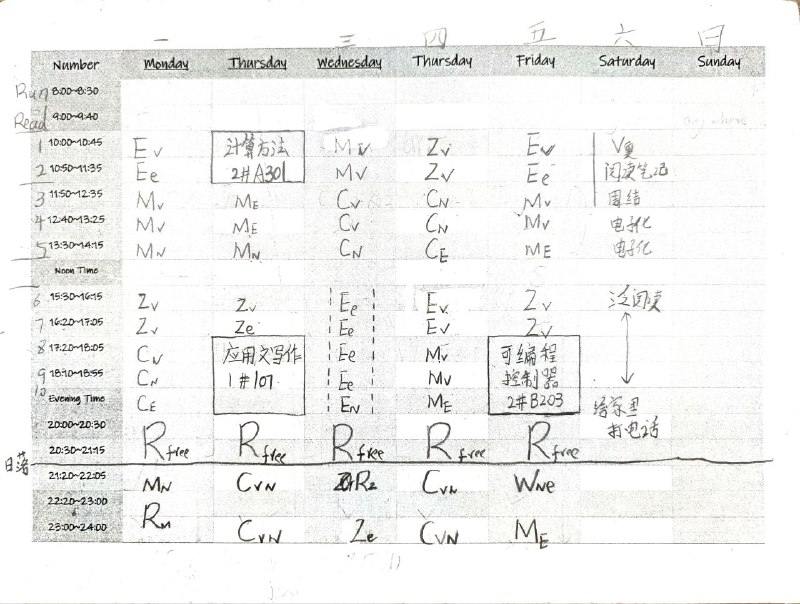 一 三 四 五 六 日
Number Monday Thursday Wednesday Thursday Friday Saturday Sunday
Run 8:00~8:30
Read 9:00~9:40
1 10:00~10:45 Ev 计算方法 Mv Zv Ev V复
2 10:50~11:35 Ee 2#A301 Mv Zv Ee 阅读笔记
3 11:50~12:35 Mv ME Cv CN Mv 周结
4 12:40~13:25 Mv ME CN CN Mv 电子化
5 13:30~14:15 MN MN CN CE ME 电子化
Noon Time
6 15:30~16:15 Zv Zv Ee Ev Zv 泛阅读
7 16:20~17:05 Zv Ze Ee Ev Zv
8 17:20~18:05 CN 应用文写作 Ee Mv 可编程
9 18:10~18:55 CN 1#107 Ee Mv 控制器
10 Evening Time CE EN ME 2#B203 给家里
打电话
20:00~20:30
20:30~21:15 Rfree Rfree Rfree Rfree Rfree
日落
21:20~22:05 MN CVN R2 CVN WNe
22:20~23:00 RM
23:00~24:00 CVN Ze CVN ME